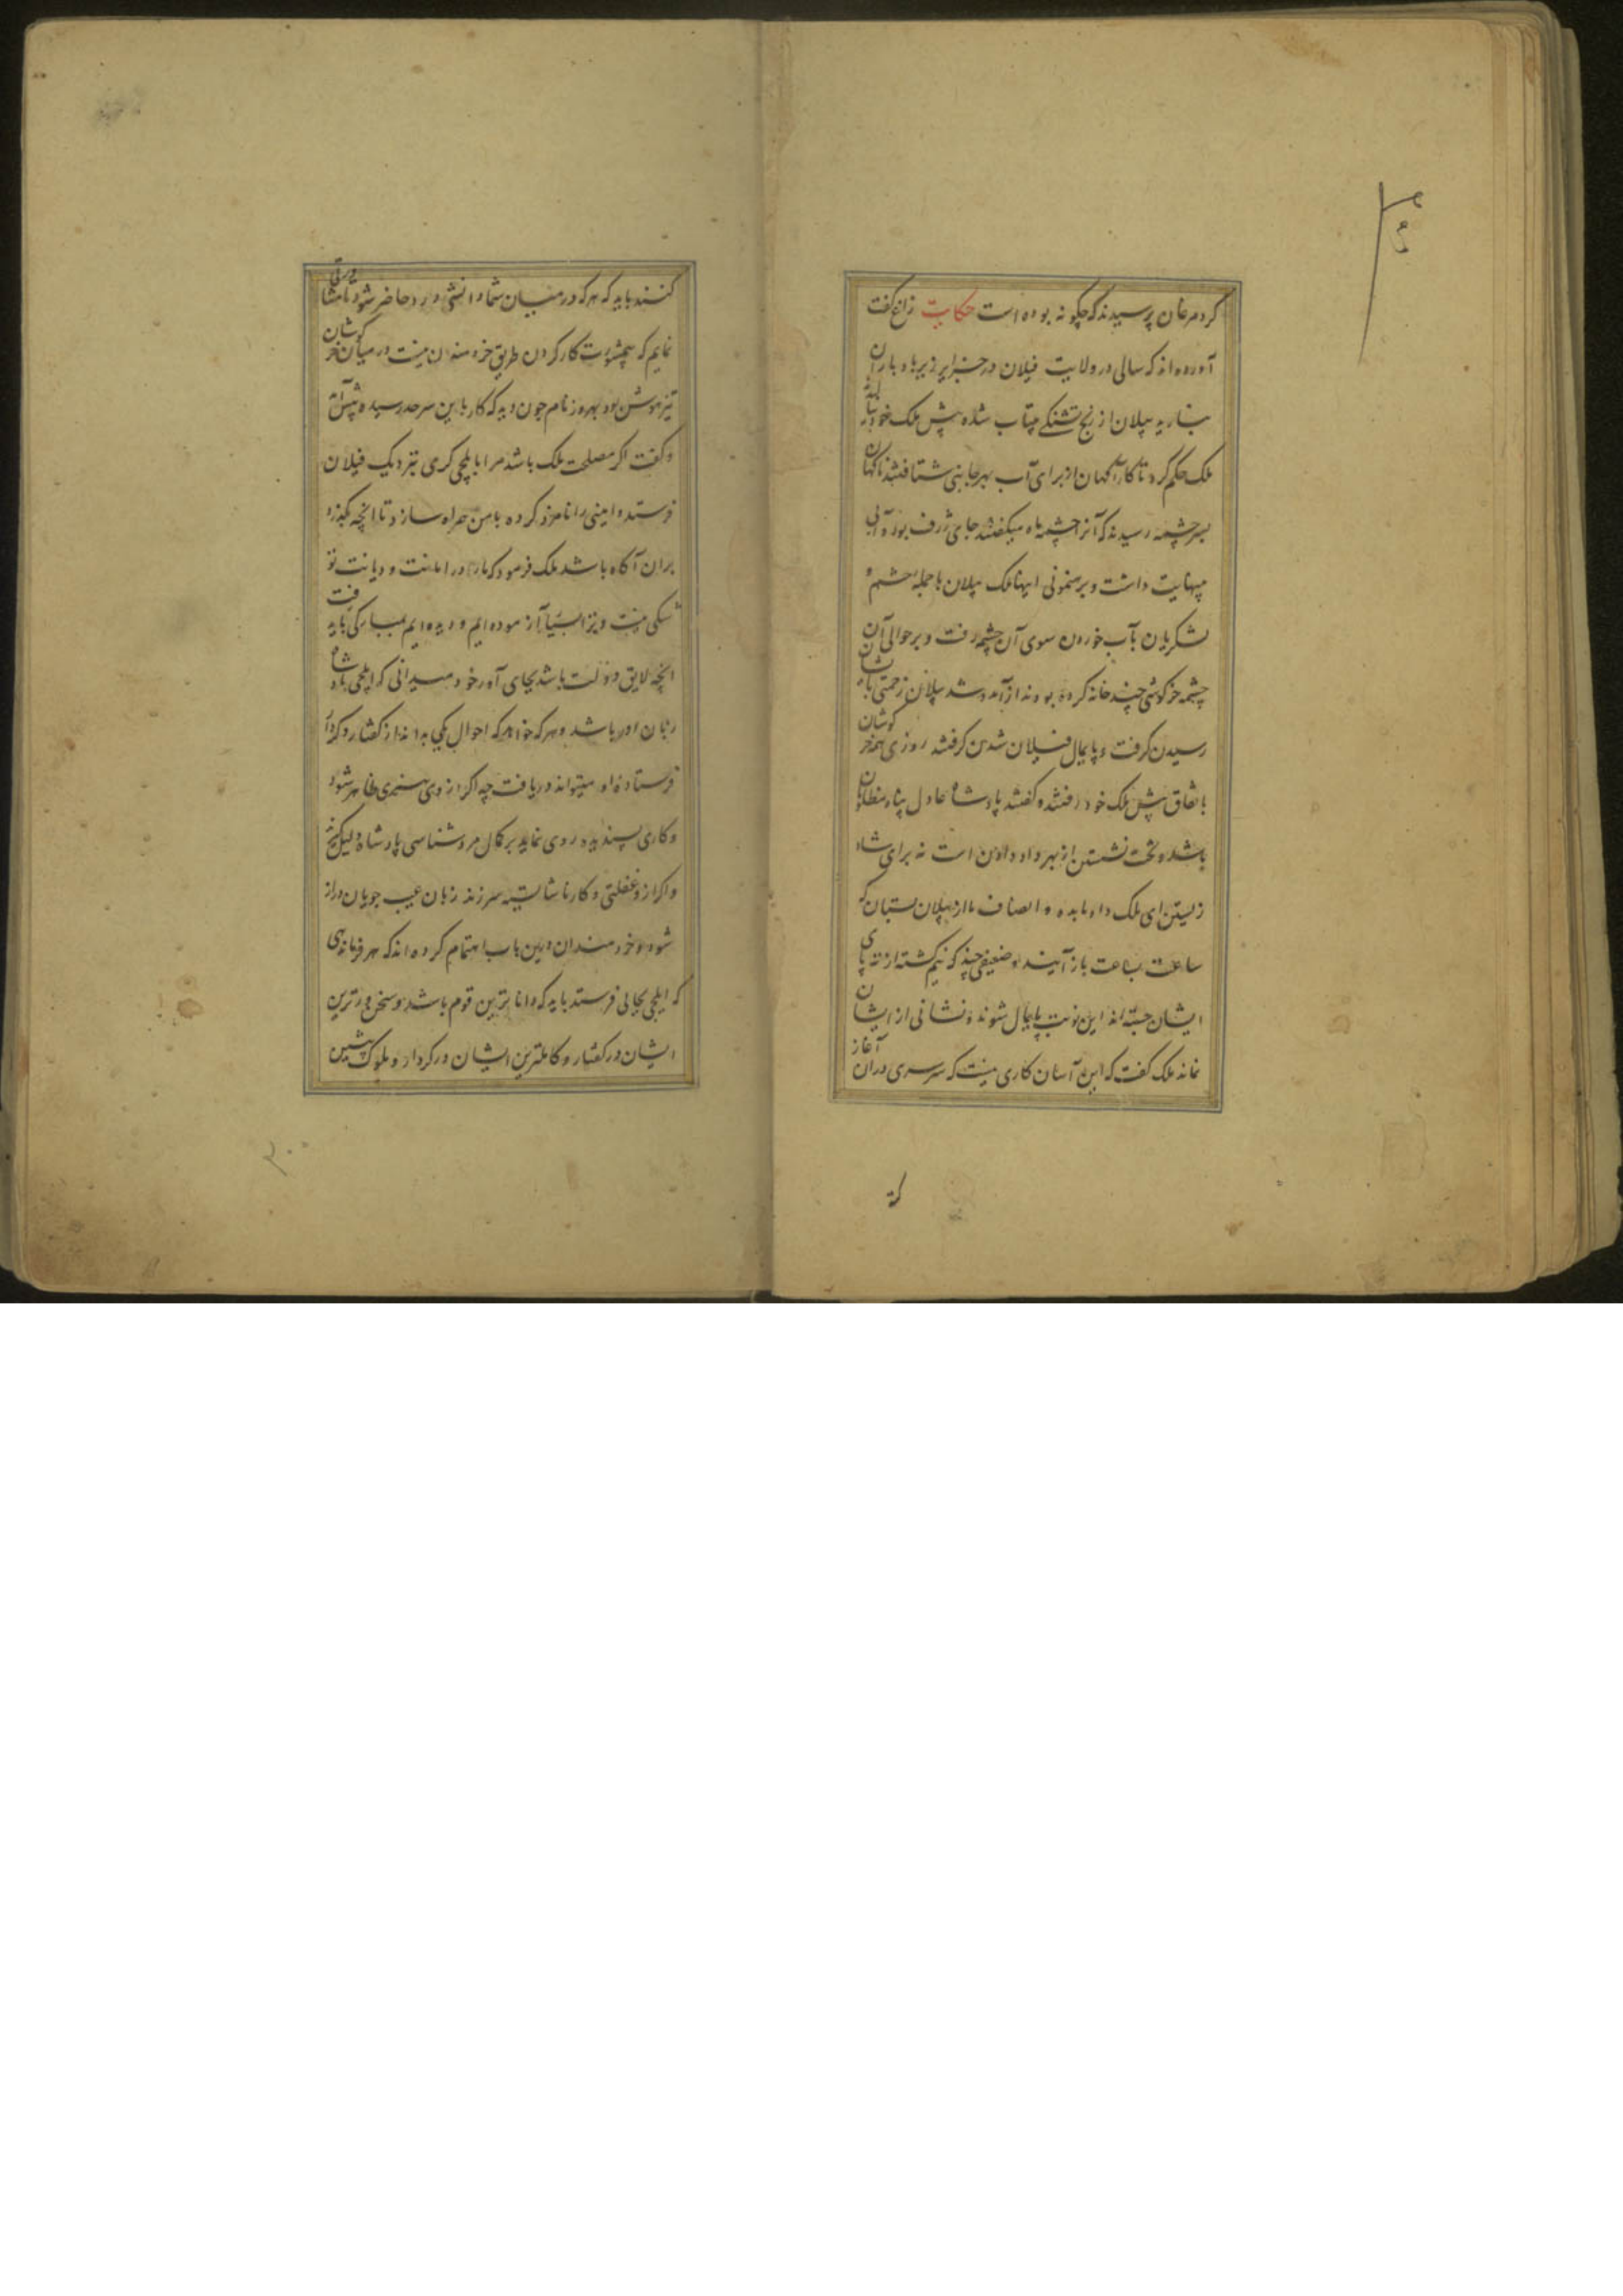 کرد مرغان پرسیدند که چگونه بوده است حکایت زاغ گفت
آورده اند که سالی در ولایت فیلان در جزایر زیرباد باران
نبارید پیلان از رنج تشنگی بیتاب شده پیش ملک خود نالیدند
ملک حکم کرد تا کارآگهان از برای آب بهر جانبی شتافتند ناگهان
بسر چشمه رسیدند که آنرا چشمه ماه میگفتند جای ژرف بود و آبی
بینهایت داشت و برهنمونی اینها ملک پیلان با جمله حشم و
لشکریان بآب خوردن سوی آن چشمه رفت و بر حوالی آن
چشمه خرگوشی چند خانه کرده بودند از آمد و شد پیلان زحمتی بایشان
رسیدن گرفت و پایمال فیلان شدن گرفتند روزی همه خرگوشان
باتفاق پیش ملک خود رفتند و گفتند پادشاه عادل پناه مظلومان
باشد و تخت نشستن از بهر داد دادن است نه برای شاد
زیستن ای ملک داد ما بده و انصاف ما از پیلان بستان که
ساعت بساعت باز آیند و ضعیفی چند که نیم کشته از ته پای
ایشان جسته اند این نوبت پایمال شوند و نشانی از ایشان
نماند ملک گفت که این آسان کاری نیست که سرسری در آن آغاز
کنند باید که هر که در میان شما دانشی دارد حاضر شود تا مشاورتی
نمایم که بیمشورت کار کردن طریق خردمندان نیست در میان خرگوشان
تیزهوشی بود بهروز نام چون دید که کار باین سرحد رسیده پیش آمد
و گفت اگر مصلحت ملک باشد مرا بایلچی گری نزدیک فیلان
فرستد و امینی را نامزد کرده با من همراه سازد تا آنچه بگذرد
بر آن آگاه باشد ملک فرمود که مارا در امانت و دیانت تو
شکی نیست و ترا بسیار آزموده ایم و دیده ایم بمبارکی باید رفت
آنچه لایق دولت باشد بجای آور خود میدانی که ایلچی پادشاه
زبان او باشد و هر که خواهد که احوال یکی بداند از گفتار و کردار
فرستاده او میتواند دریافت چه اگر از وی هنری ظاهر شود
و کاری پسندیده روی نماید بر کمال مردشناسی پادشاه دلیل کنند
و اگر ازو غفلتی و کار ناشایسته سر زند زبان عیب جویان دراز
شود و خردمندان درین باب اهتمام کرده اند که هر فرماندهی
که ایلچی بجائی فرستد باید که داناترین قوم باشد و سخن ورترین
ایشان در گفتار و کاملترین ایشان در کردار و ملوک پیشین